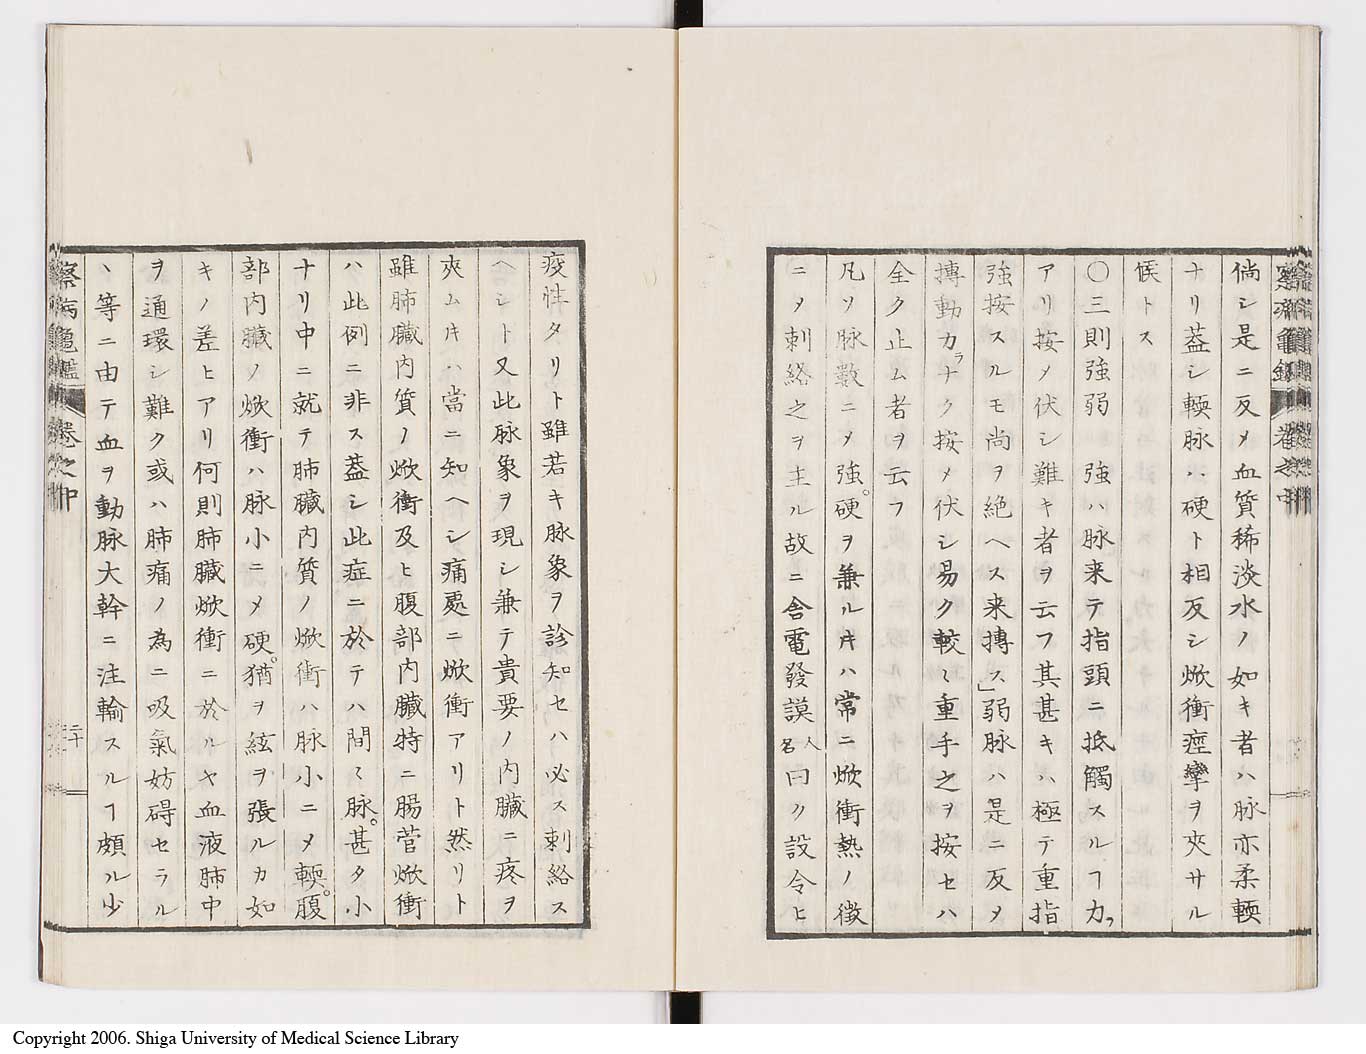 倘シ是ニ反メ血質稀淡水ノ如キ者ハ脉亦柔輭
ナリ蓋シ輭脉ハ硬ト相反シ焮衝痙攣ヲ夾サル
候トス
〇三則強弱 強ハ脉来テ指頭ニ抵觸スルヿ力
アリ按メ伏シ難キ者ヲ云フ其甚キハ極テ重指
強按スルモ尚ヲ絶ヘス来摶ス」弱脉ハ是ニ反メ
摶動力ラナク按メ伏シ易ク較〻重手之ヲ按セハ
全ク止ム者ヲ云フ
凡ソ脉數ニメ強。硬ヲ兼ルキハ常ニ焮衝熱ノ徴
ニメ刺絡之ヲ主ル故ニ舎電發謨人名曰ク設令ヒ
疫性タリト雖若キ脉象ヲ診知セハ必ス刺絡ス
ヘシト又此脉象ヲ現シ兼テ貴要ノ内臓ニ疼ヲ
夾ムキハ當ニ知ヘシ痛處ニ焮衝アリト然リト
雖肺臓内質ノ焮衝及ヒ腹部内臓特ニ腸管焮衝
ハ此例ニ非ス蓋シ此症ニ於テハ間〻脉。甚タ小
ナリ中ニ就テ肺臓内質ノ焮衝ハ脉小ニメ輭。腹
部内臓ノ焮衝ハ脉小ニメ硬。猶ヲ絃ヲ張ルカ如
キノ差ヒアリ何則肺臓焮衝ニ於ルヤ血液肺中
ヲ通環シ難ク或ハ肺痛ノ為ニ吸氣妨碍セラル
ヽ等ニ由テ血ヲ動脉大幹ニ注輸スルヿ頗ル少
察病亀鑑 卷之中
二十
Copyright 2006. Shiga University of Medical Science Library